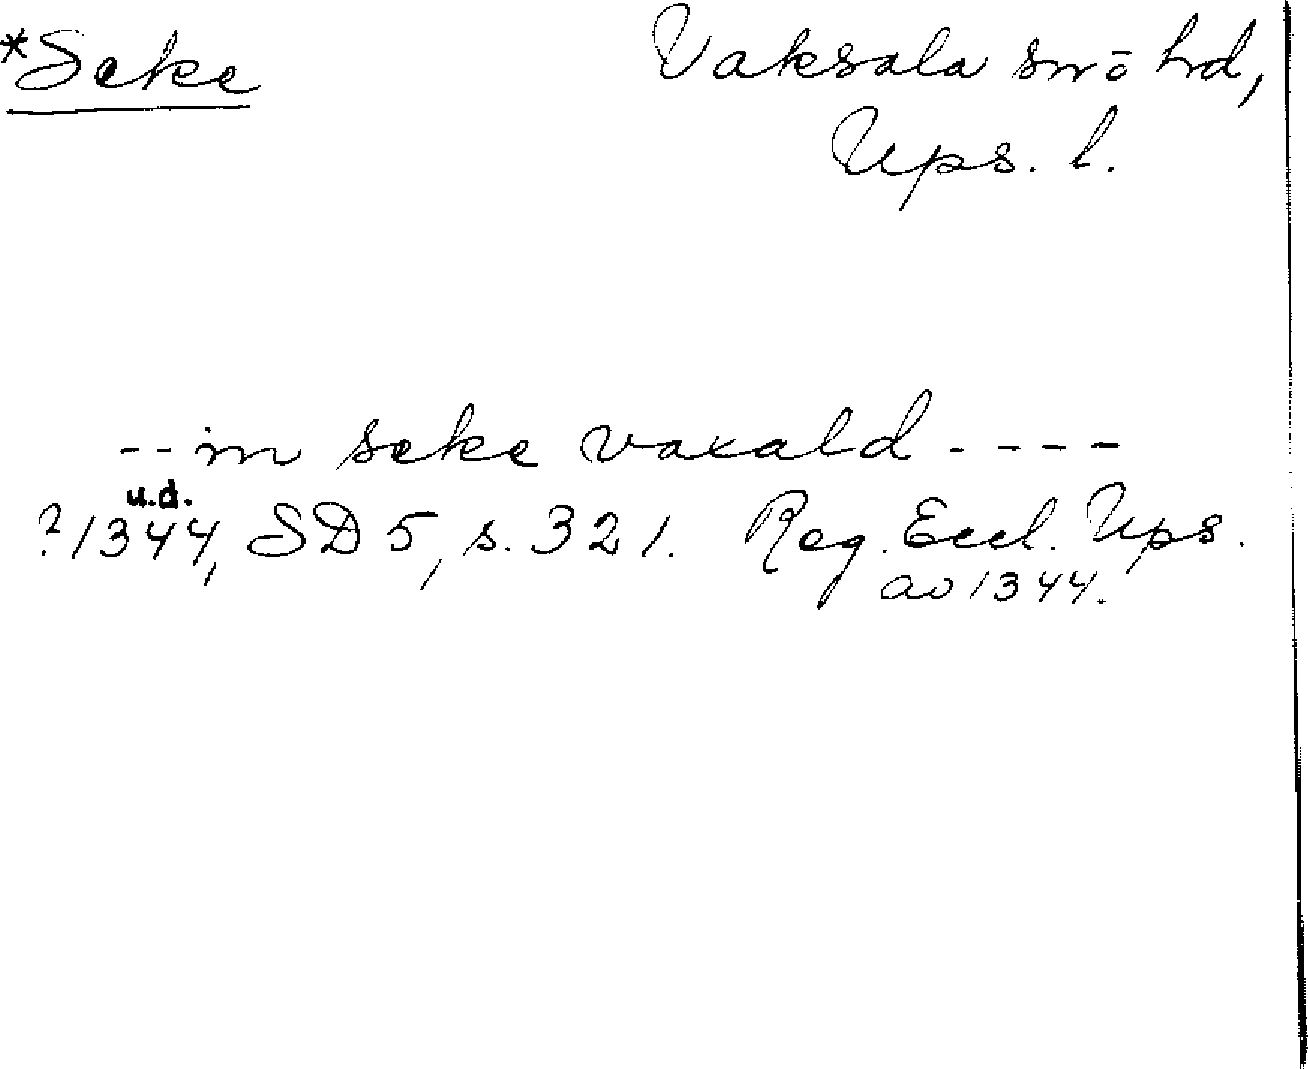 *Seke Vaksala sn o hd,
Ups. l.
-- in seke vaxald ----
u.d.
? 1344, SD 5, s. 321. Reg. Eccl. Ups.
av 1344.